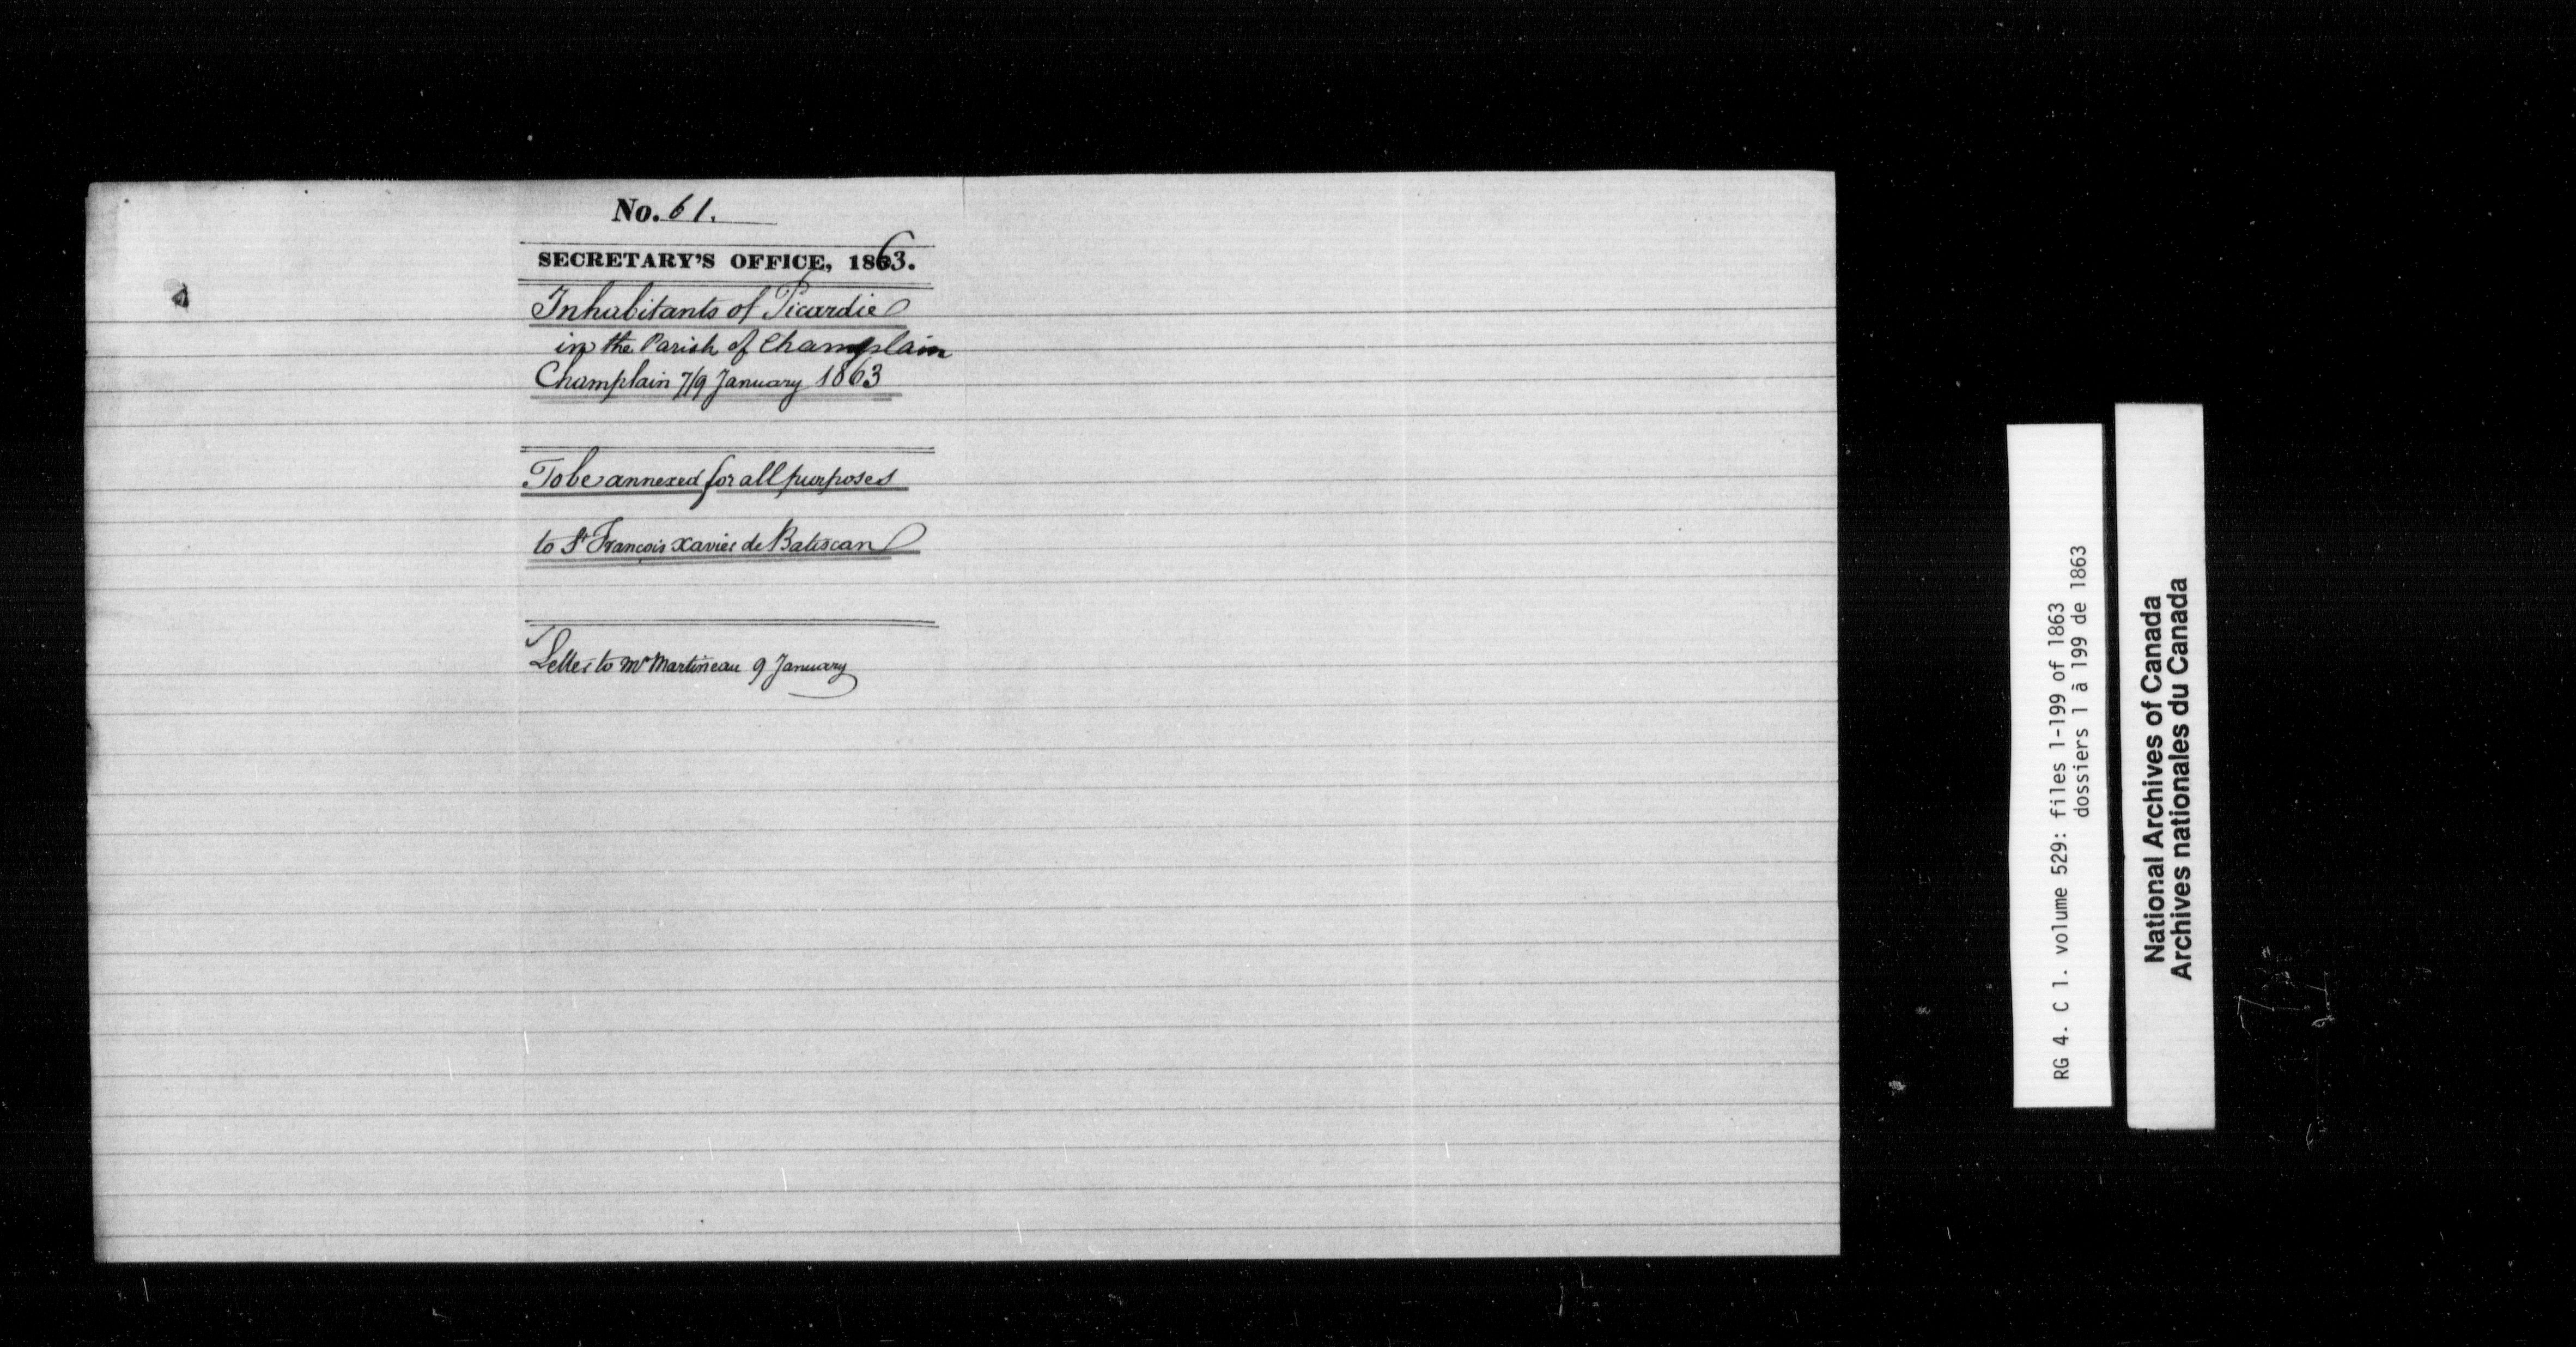 No. 61.
SECRETARY'S OFFICE, 1863.
Inhabitants of Picardie
in the Parish of Champlain
Champlain 7/9 January 1863
To be annexed for all purposes
to St François Xavier de Batiscan
Letter to Mr Martineau 9 January
RG 4. C 1. volume 529: files 1-199 of 1863
dossiers 1 à 199 de 1863
National Archives of Canada
Archives nationales du Canada